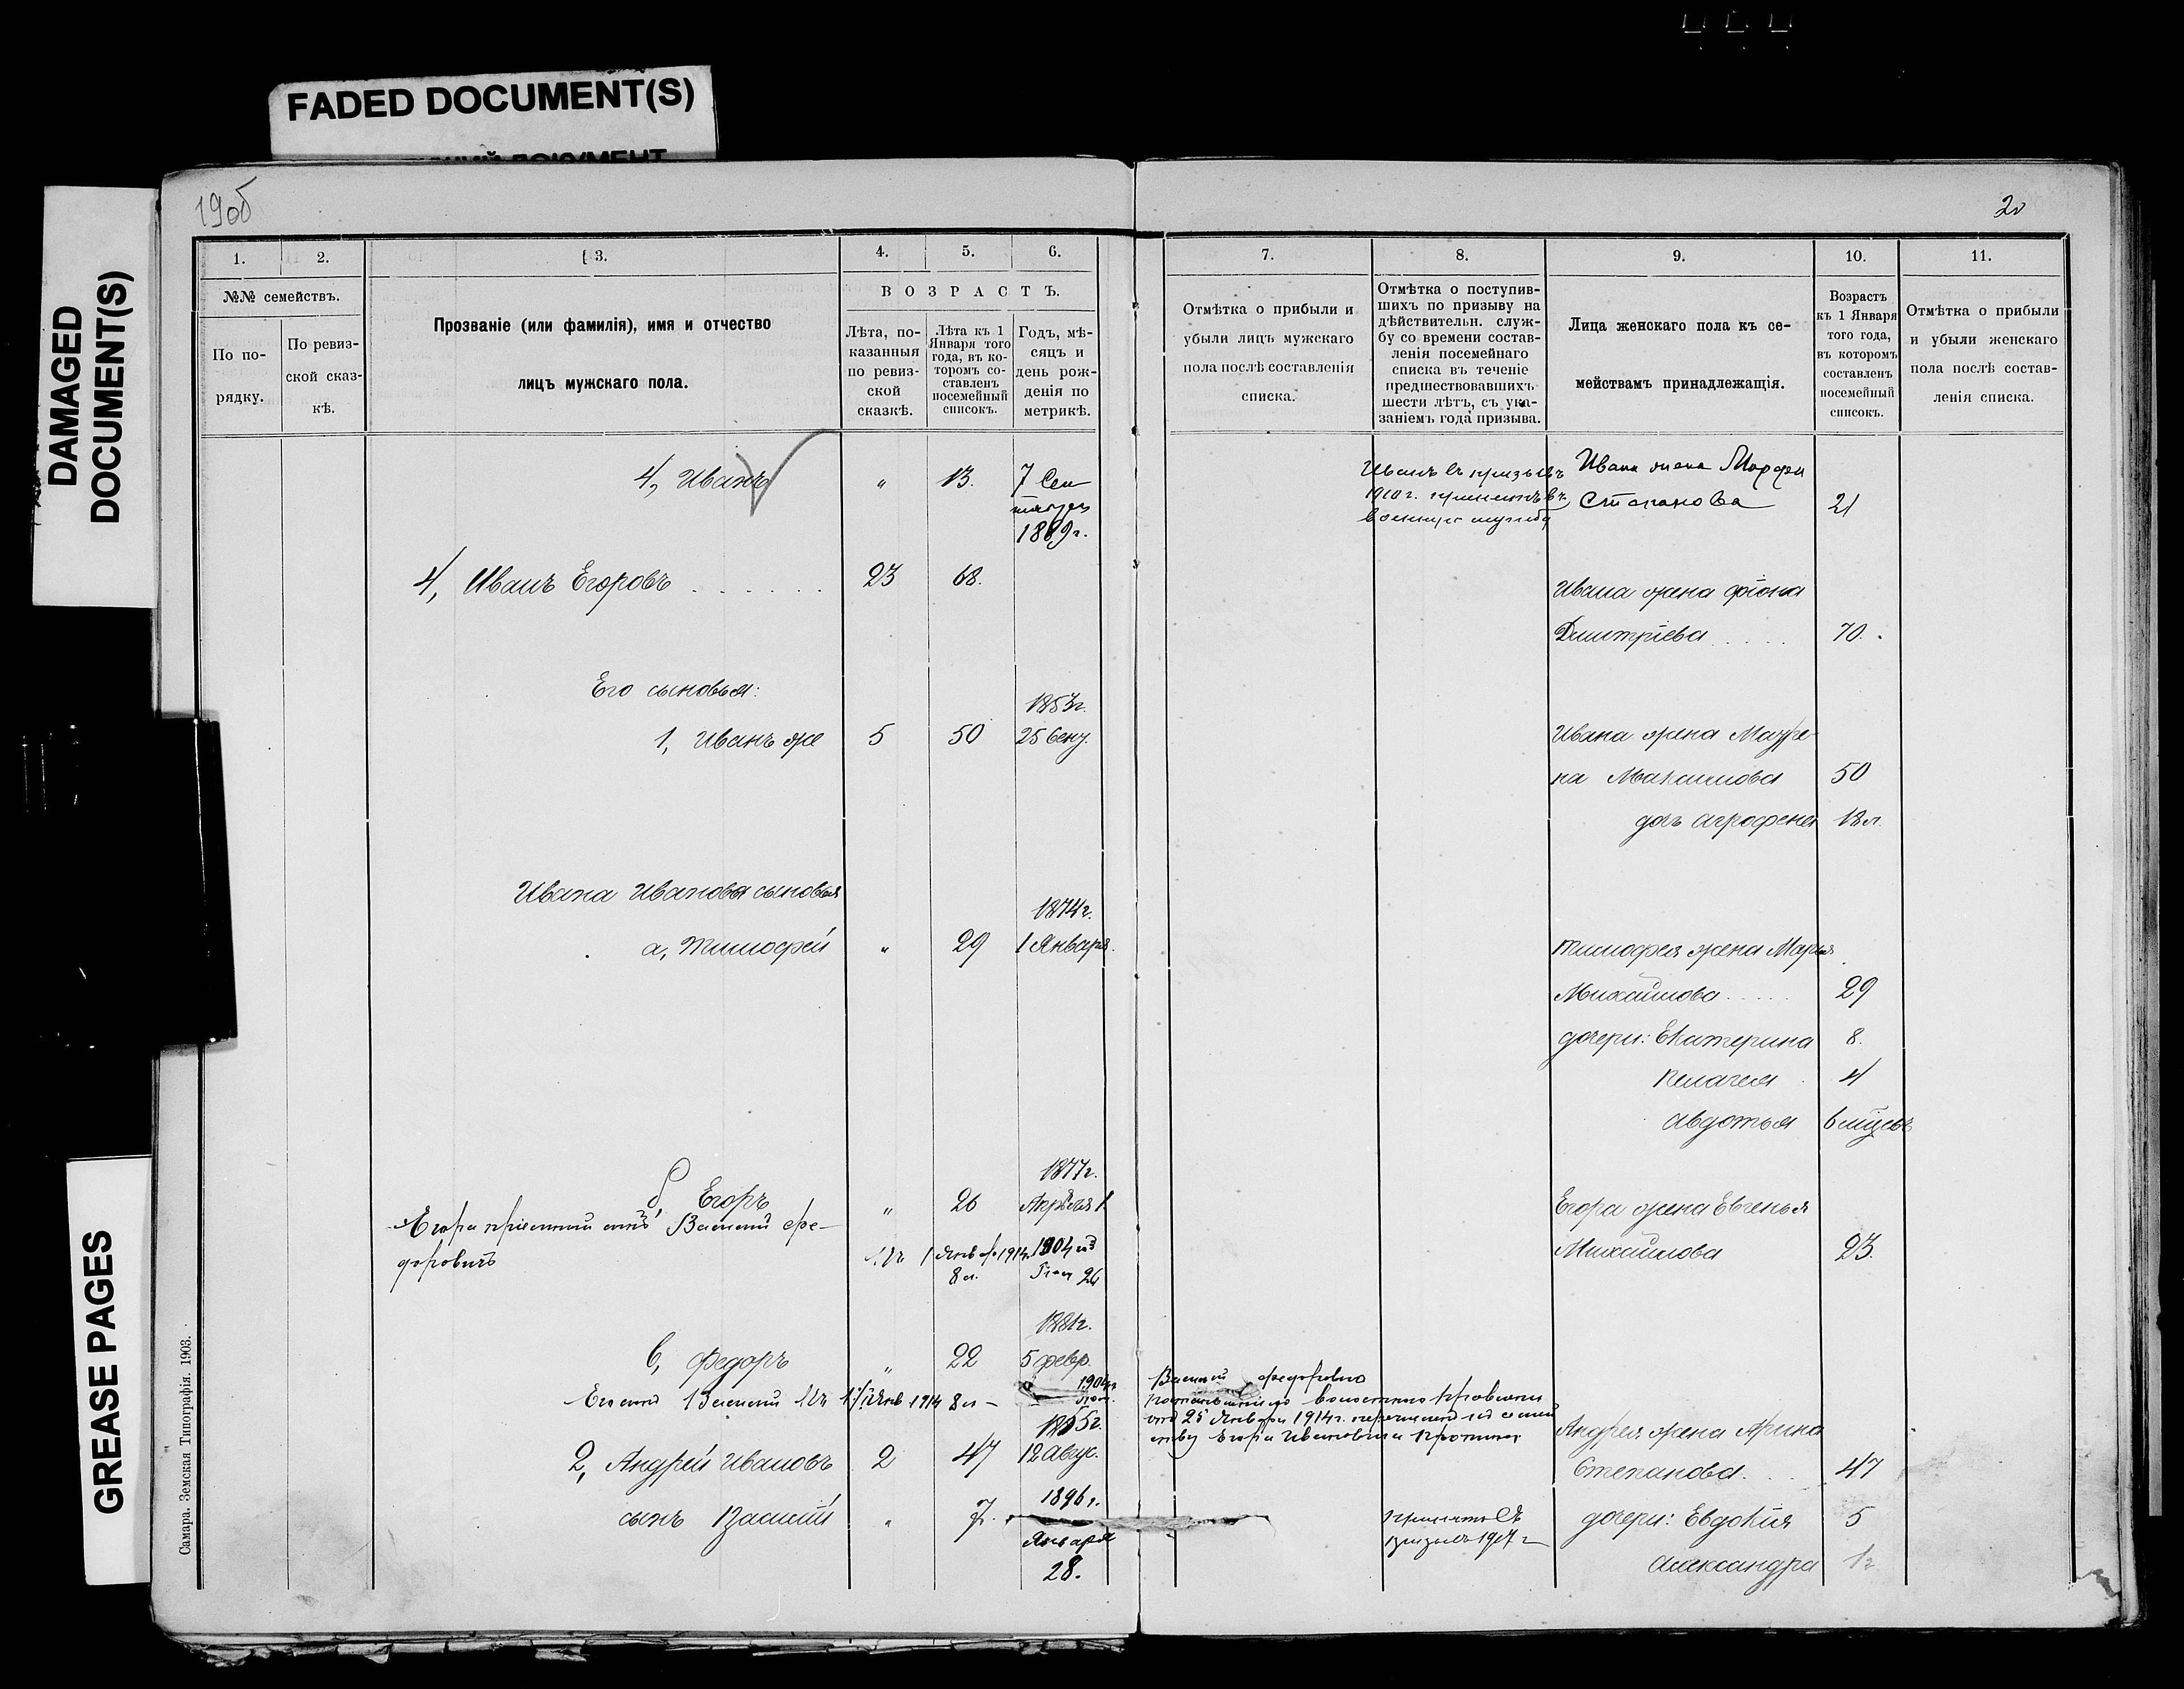 FADED DOCUMENT(S)
DAMAGED
DOCUMENT(S)
GREASE PAGES
Самара. Земская Типографія. 1903.
190б
20
1.
2.
3.
4.
5.
6.
№№ семействъ.
По по-
рядку.
По ревиз-
ской сказ-
кѣ.
Прозваніе (или фамилія), имя и отчество
лицъ мужскаго пола.
ВОЗРАСТЪ.
Лѣта, по-
казанныя
по ревиз-
ской
сказкѣ.
Лѣта къ 1
Января того
года, въ ко-
торомъ со-
ставленъ
посемейный
списокъ.
Годъ, мѣ-
сяцъ и
день рож-
денія по
метрикѣ.
4, Иванъ " 13. 7 Сен
тября
1889г.
4, Иванъ Егоровъ . . . . . . 23 68.
Его сыновья:
1853г.
1, Иванъ же 5 50 25 Сент.
Ивана Иванова сыновья
1874г.
а, Тимофей " 29 1 Января.
1877г.
б, Егоръ " 26 Апрѣля 1
Егора пріемный сынъ Василий Фе-
доровичъ
1 Янв 1914 1904
8 л. 26
1881г.
в, Федоръ " 22 5 февр.
Его сынъ Василий 1 Янв 1914 8 л - 1904г
1855г.
2, Андрей Ивановъ 2 47 12 Авгус.
1896г.
сынъ Василий " 7.
Января
28.
7.
8.
9.
10.
11.
Отмѣтка о прибыли и
убыли лицъ мужскаго
пола послѣ составленія
списка.
Отмѣтка о поступив-
шихъ по призыву на
дѣйствительн. служ-
бу со времени состав-
ленія посемейнаго
списка въ теченіе
предшествовавшихъ
шести лѣтъ, съ ука-
заніемъ года призыва.
Лица женскаго пола къ се-
мействамъ принадлежащія.
Возрастъ
къ 1 Января
того года,
въ которомъ
составленъ
посемейный
списокъ.
Отмѣтка о прибыли
и убыли женскаго
пола послѣ состав-
ленія списка.
Иванъ въ призывъ
1910г. принятъ въ
военную службу
Ивана жена Марфа
Степанова 21
Ивана жена Фіона
Дмитріева . . . . 70.
Ивана жена Матре-
на Максимова 50
дочь Аграфена 18 л.
Тимофея жена Марья
Михайлова . . . . 29
дочери: Екатерина 8.
Пелагея 4
Авдотья 6 мѣсяц
Егора жена Евгенья
Михайлова 23.
Василий Федоровъ
волостного правленія
отъ 25 Января 1914г. перечисленъ въ семей
ству Егора Ивановича
Андрея жена Арина
Степанова. . . 47
принятъ въ
призывъ 1917 г
дочери: Евдокия 5
Александра 1г